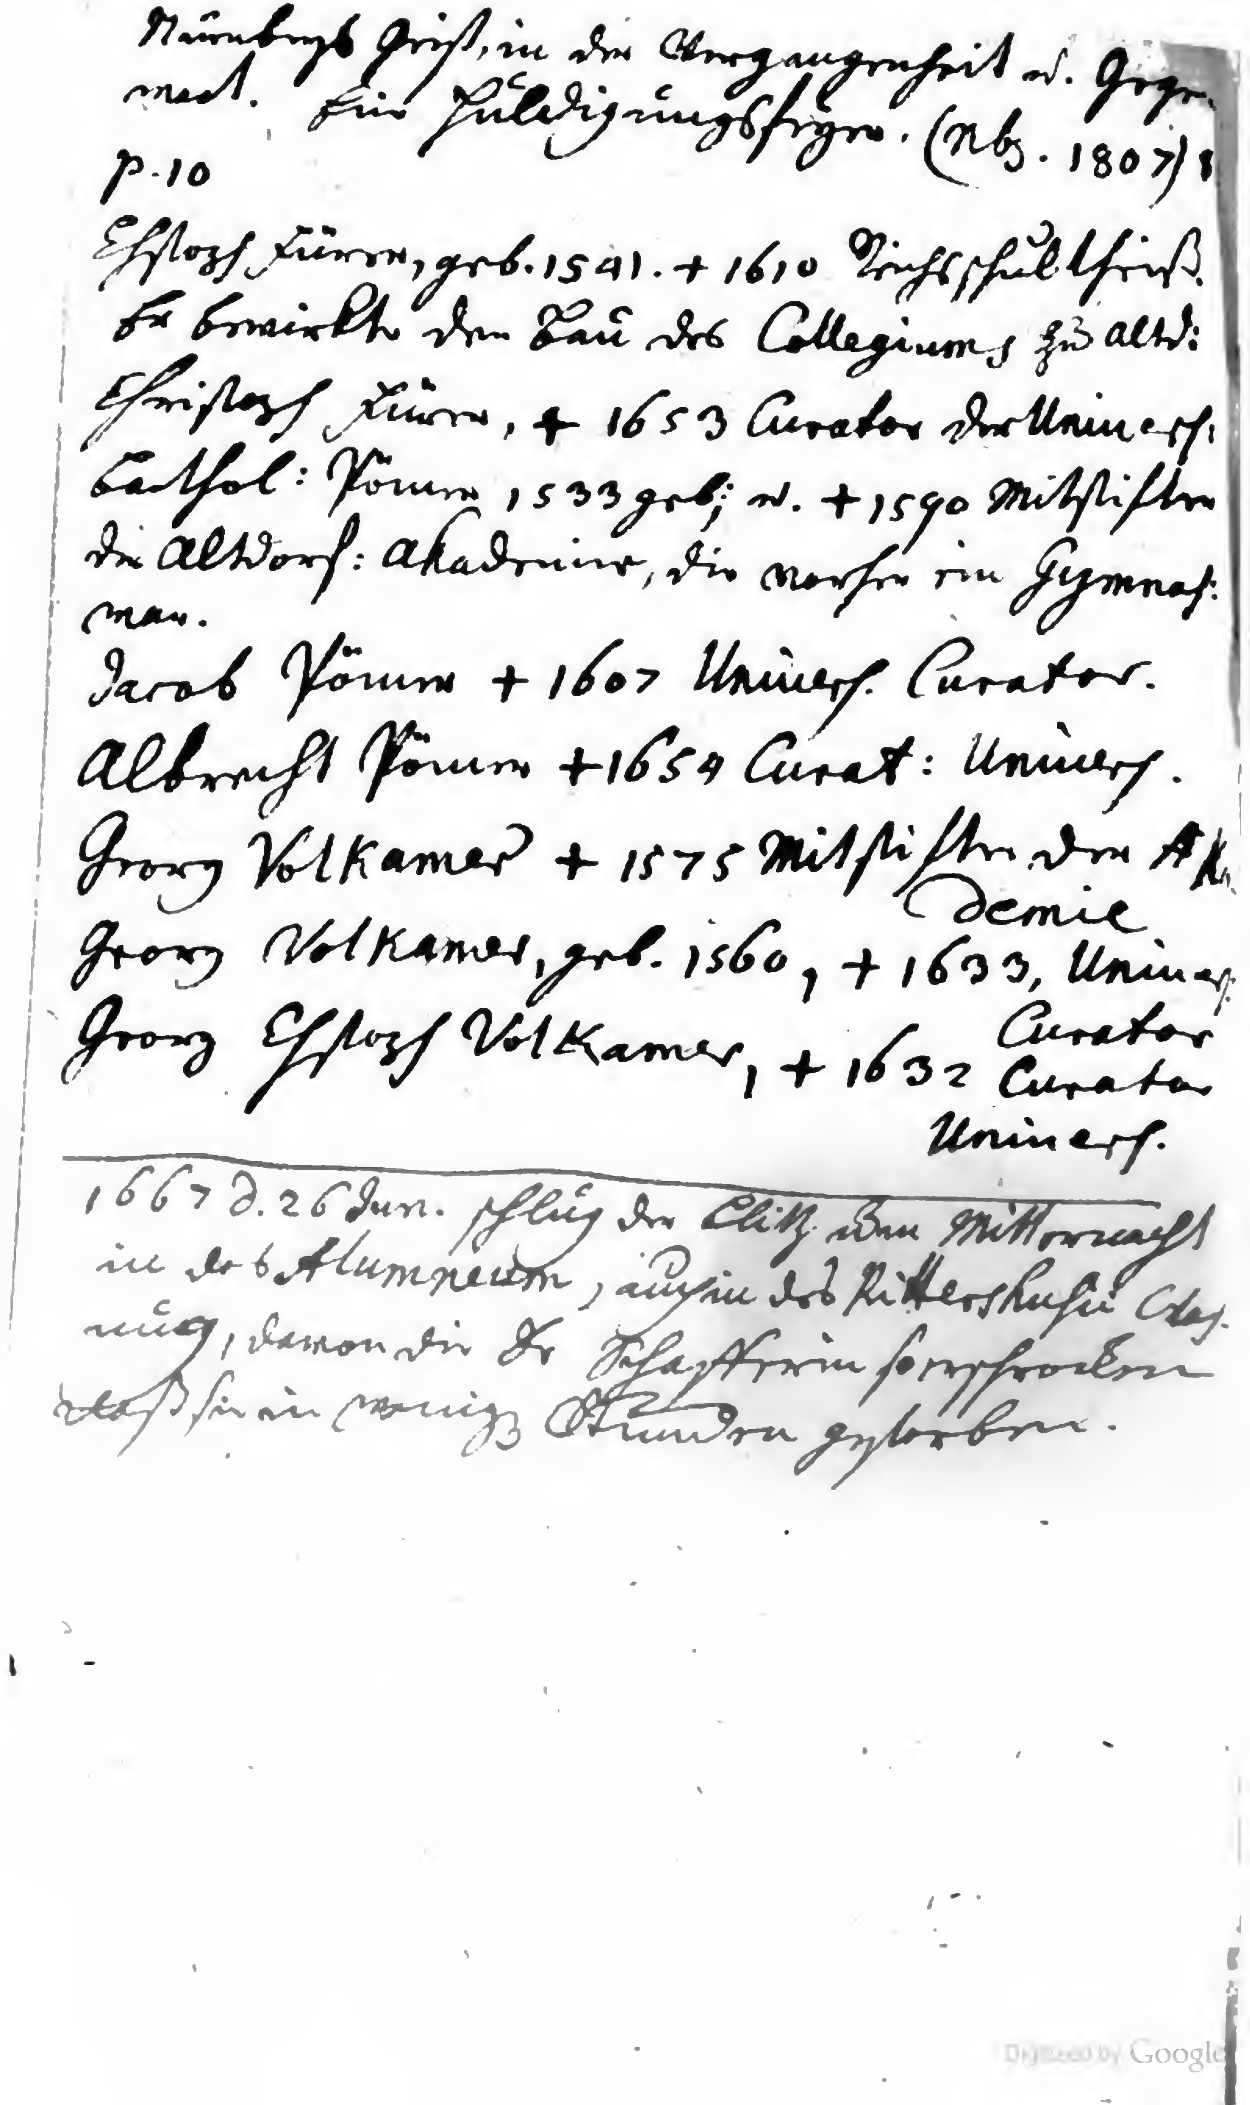 Nürnbergs Geist, in der Vergangenheit u. Gegen-
wart. Eine Huldigungsfeyer. (Nbg. 1807) 8
p. 10
Chstoph Fürer, geb. 1541. + 1610 Reichsschultheiß.
Er bewirkte den Bau des Collegiums zu Altd:
Christoph Fürer, + 1653 Curator der Univers:
Barthol: Pömer 1533 geb; u. + 1590 Mitstifter
der Altdorf: Akademie, die vorher ein Gymnas:
war.
Jacob Pömer + 1607 Univers. Curator.
Albrecht Pömer + 1654 Curat: Univers.
Georg Volkamer + 1575 Mitstifter der Aka
demie
Georg Volkamer, geb. 1560, + 1633, Univers.
Curator
Georg Chstoph Volkamer, + 1632 Curator
Univers.
1667 d. 26 Jun. schlug der Blitz um Mitternacht
in das Alumneum, auch in des Rittershusii
, davon die Fr Schafferin so erschrocken
daß sie in wenig Stunden gestorben.
Digitized by Google